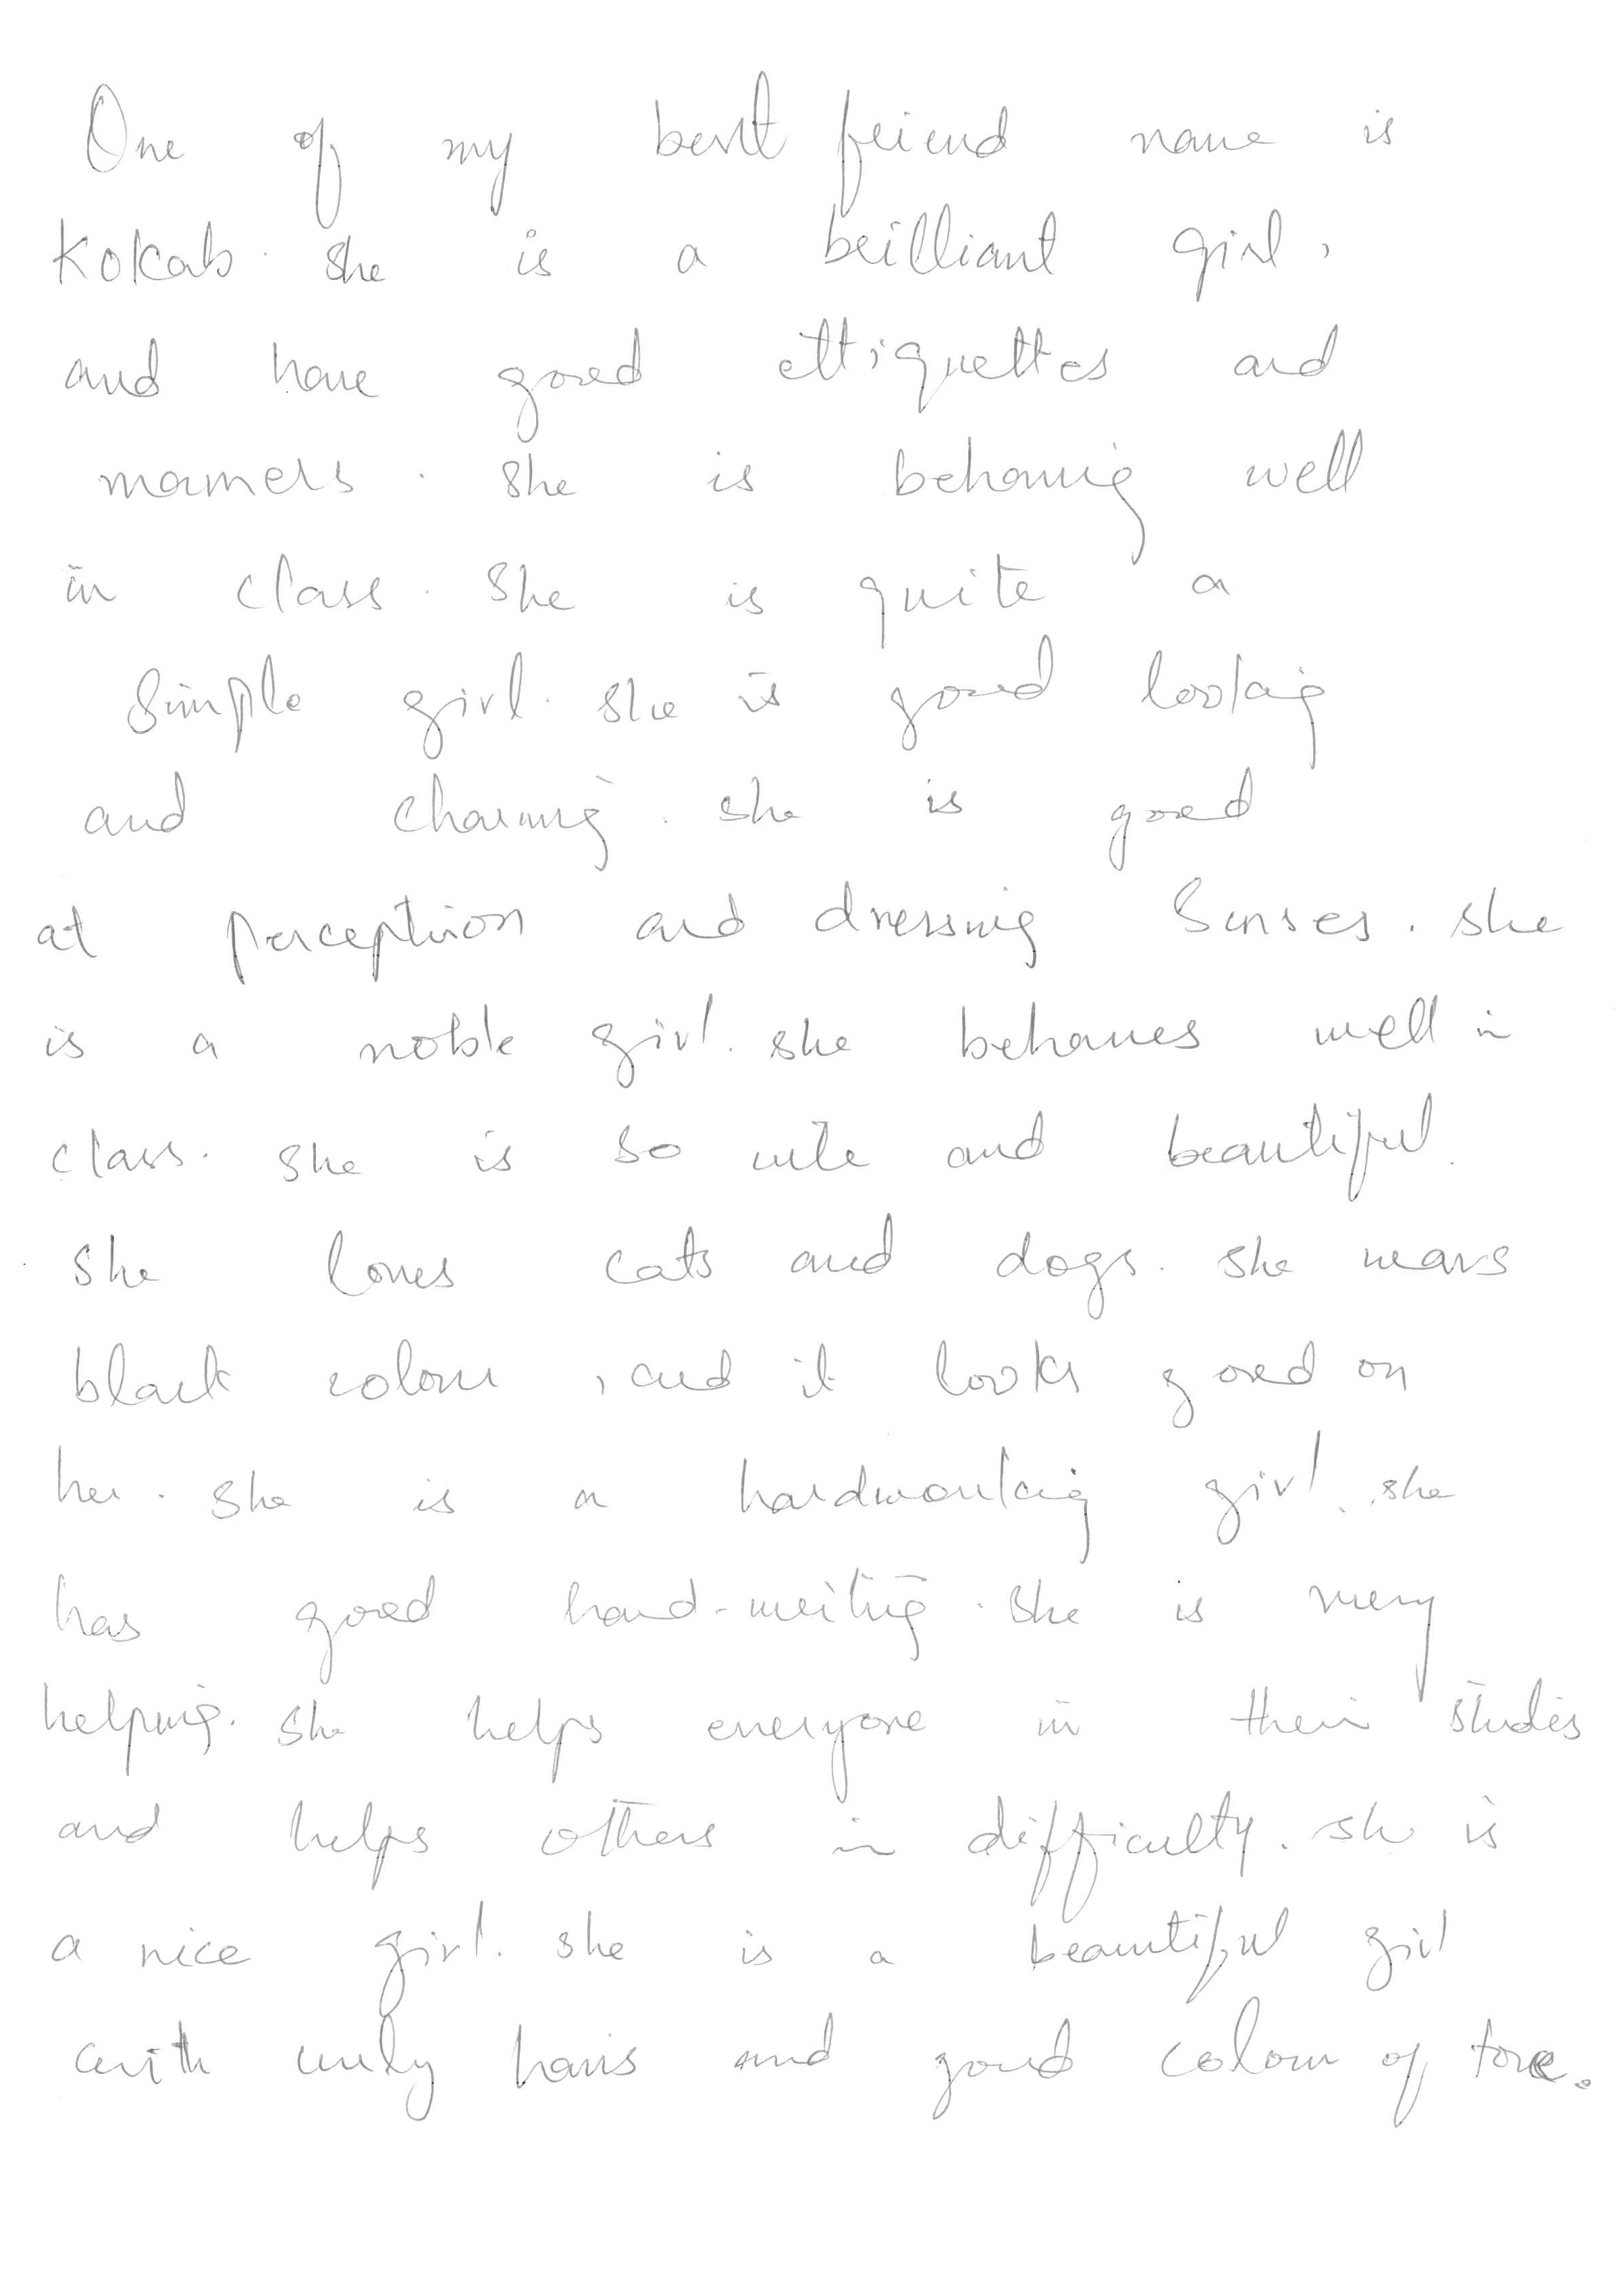 One of my best friend name is
Kokab. She is a brilliant girl,
and have good ettiquettes and
manners. She is behaving well
in class. She is quite a
Simple girl. She is good looking
and charming. She is good
at perception and dressing Senses. She
is a noble girl. She behaves well in
class. She is so cute and beautiful.
She loves cats and dogs. She wears
black colour, and it looks good on
her. She is a hardworking girl. She
has good hand-writing. She is very
helping. She helps everyone in their studies
and helps others in difficulty. She is
a nice girl. She is a beautiful girl
with curly hairs and good colour of tone.